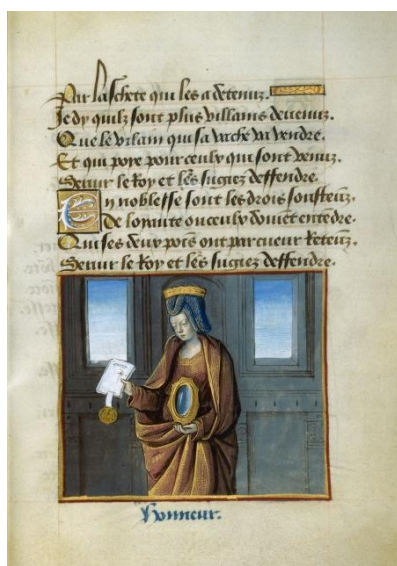 Par laschete qui les a detenuz.
Je dy quilz sont plus villains deuenuz.
Que le vilain qui sa vache va vendre.
Et qui poye pour ceulx qui sont venuz.
Seruir le Roy et les sugiez deffendre.
En noblesse sont les drois soustenuz.
De loyaute ou ceulx doiuēt entēdre.
Qui ses deux pois ont par cueur retenuz.
Seruir le Roy et les sugiez deffendre.
Honneur.